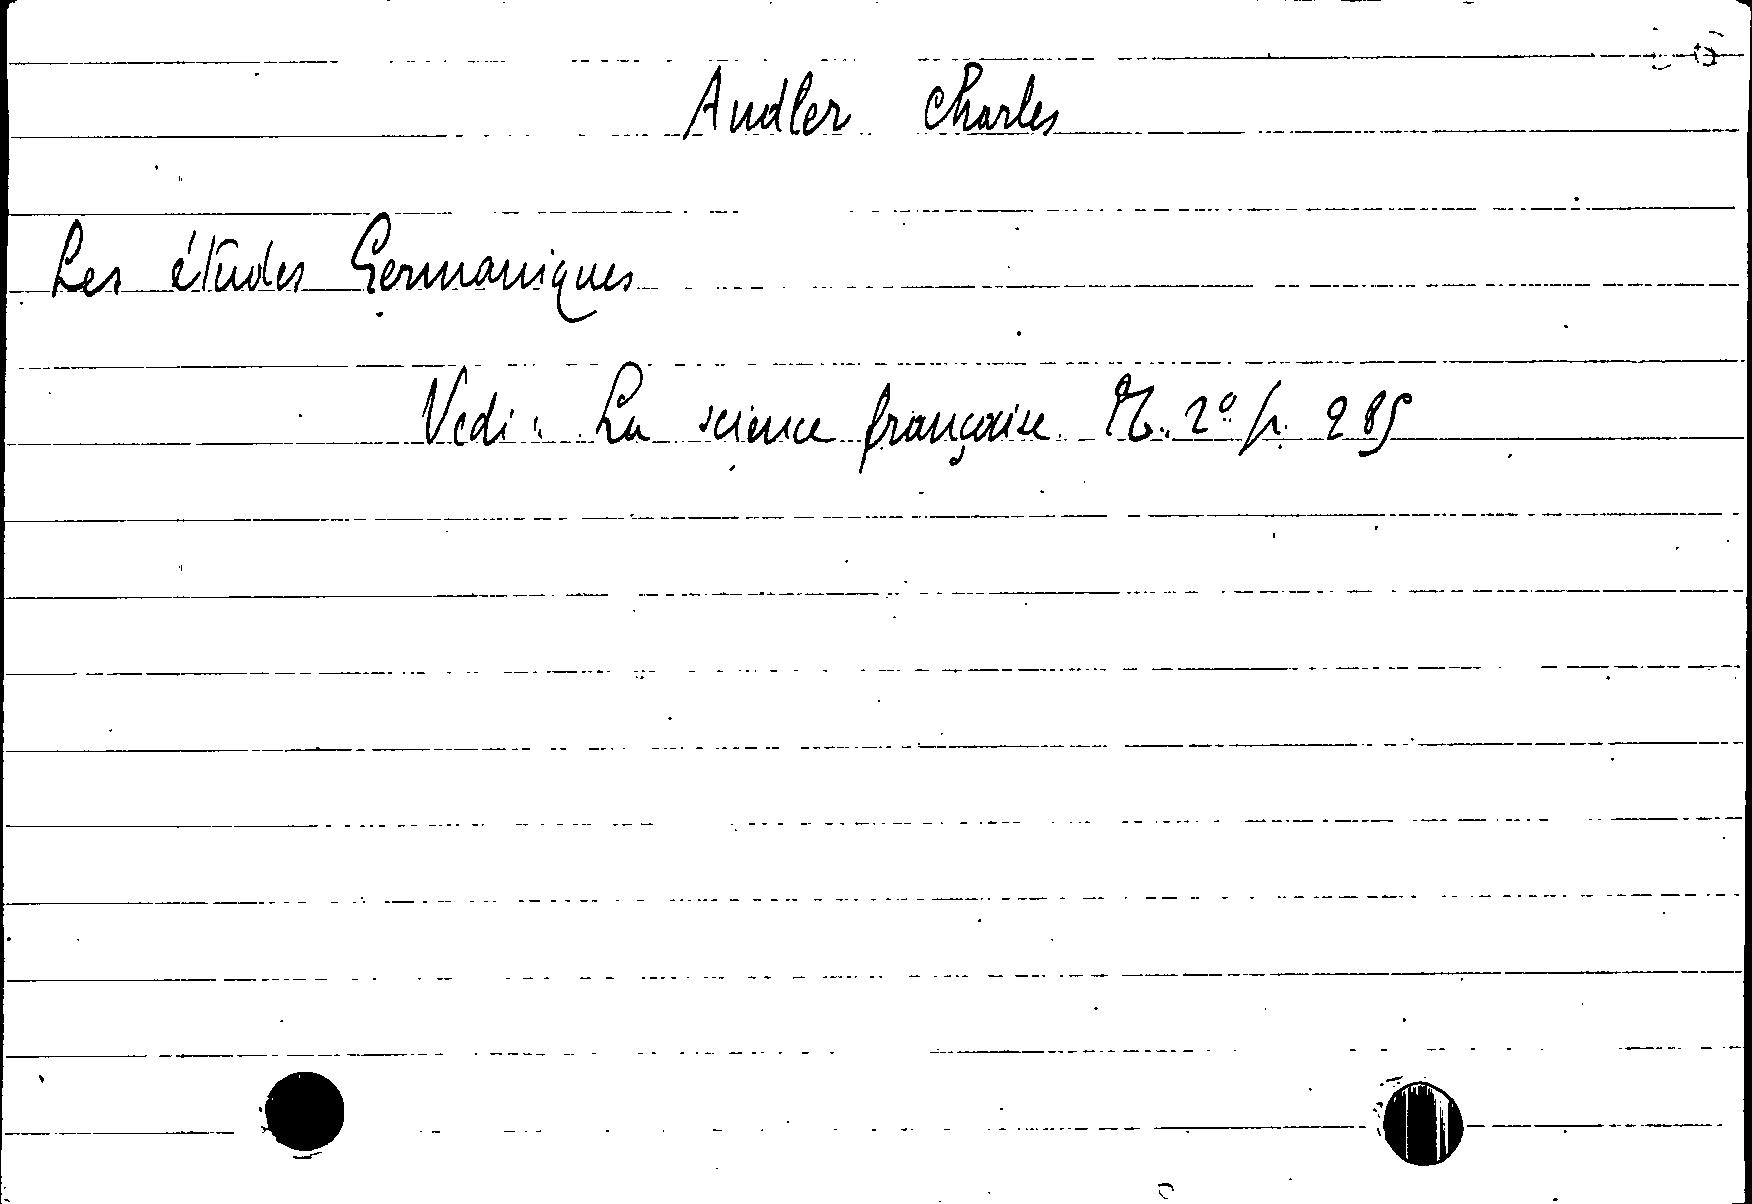 Audler Charles
Les études Germaniques
Vedi: La science française. T. 2º p. 285